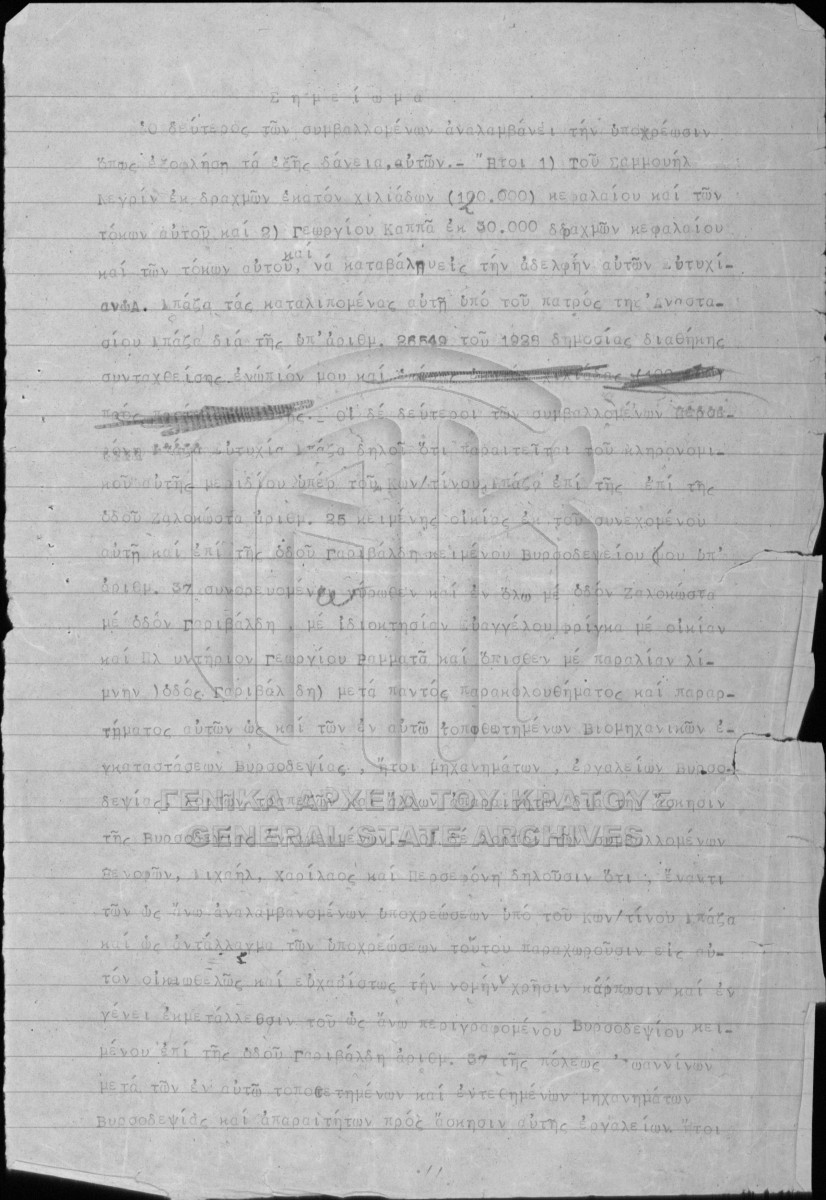 Σημείωμα
Ὁ δεύτερος τῶν συμβαλλομένων ἀναλαμβάνει τήν ὑποχρέωσιν
ὅπως ἐξοφλήση τά ἑξῆς δάνεια, αὐτῶν.- Ἤτοι 1) Τοῦ Σαμμουήλ
Λευῆ ἐκ δραχμῶν ἑκατόν χιλιάδων κεφαλαίου καί τῶν
τόκων αὐτοῦ καί 2) Γεωργίου Καππᾶ ἐκ 30.000 δραχμῶν κεφαλαίου
καί τῶν τόκων αὐτοῦ, καί νά καταβάλη εἰς τήν ἀδελφήν αὐτῶν Εὐτυχί-
αν Μπάζα τάς καταλιπομένας αὐτῆ ὑπό τοῦ πατρός της Ἀναστα-
σίου Μπάζα διά τῆς ὑπ' ἀριθμ. τοῦ δημοσίας διαθήκης
συνταχθείσης ἐνώπιόν μου καί
.- Οἱ δέ δεύτεροι τῶν συμβαλλομένων
Εὐτυχία Μπάζα δηλοῖ ὅτι παραιτεῖται τοῦ κληρονομι-
κοῦ αὐτῆς μεριδίου ὑπέρ τοῦ Κων/τίνου Μπάζα ἐπί τῆς ἐπί τῆς
ὁδοῦ Ζαλοκώστα ἀριθμ. 25 κειμένης οἰκίας ἐκ τοῦ συνεχομένου
αὐτῆ καί ἐπί τῆς ὁδοῦ Γαριβάλδη κειμένου Βυρσοδεψείου του ὑπ'
ἀριθμ. 37 συνορευομένων γύρωθεν καί ἐν ὅλω μέ ὁδόν Ζαλοκώστα
μέ ὁδόν Γαριβάλδη , μέ ἰδιοκτησίαν Εὐαγγέλου Φρίγκα μέ οἰκίαν
καί Πλ υντήριον Γεωργίου Βαμματᾶ καί ὅπισθεν μέ παραλίαν λί-
μνην )ὁδός Γαριβάλ δη) μετά παντός παρακολουθήματος καί παραρ-
τήματος αὐτῶν ὡς καί τῶν ἐν αὐτῶ τοποθωτημένων Βιομηχανικῶν ἐ-
γκαταστάσεων Βυρσοδεψίας , ἤτοι μηχανημάτων , ἐργαλείων Βυρσο-
δεψίας
ΓΕΝΙΚΑ ΑΡΧΕΙΑ ΤΟΥ ΚΡΑΤΟΥΣ
GENERAL STATE ARCHIVES
τῆς Βυρσοδεψίας συμβαλλομένων
Ξενοφῶν, Μιχαήλ, Χαρίλαος καί Περσεφόνη δηλοῦσιν ὅτι , ἔναντι
τῶν ὡς ἄνω ἀναλαμβανομένων ὑποχρεώσεων ὑπό τοῦ Κων/τίνου Μπάζα
καί ὡς ἀντάλλαγμα τῶν ὑποχρεώσεων τούτου παραχωροῦσιν εἰς αὐ-
τόν οἰκιοθελῶς καί εὐχαρίστως τήν νομήν χρῆσιν κάρπωσιν καί ἐν
γένει ἐκμετάλλευσιν τοῦ ὡς ἄνω περιγραφομένου Βυρσοδεψίου κει-
μένου ἐπί τῆς ὁδοῦ Γαριβάλδη ἀριθμ. 37 τῆς πόλεως Ἰωαννίνων
μετά τῶν ἐν αὐτῶ τοποθετημένων καί ἐντεθημένων μηχανημάτων
Βυρσοδεψίας καί ἀπαραιτήτων πρός ἄσκησιν αὐτῆς ἐργαλείων ἤτοι